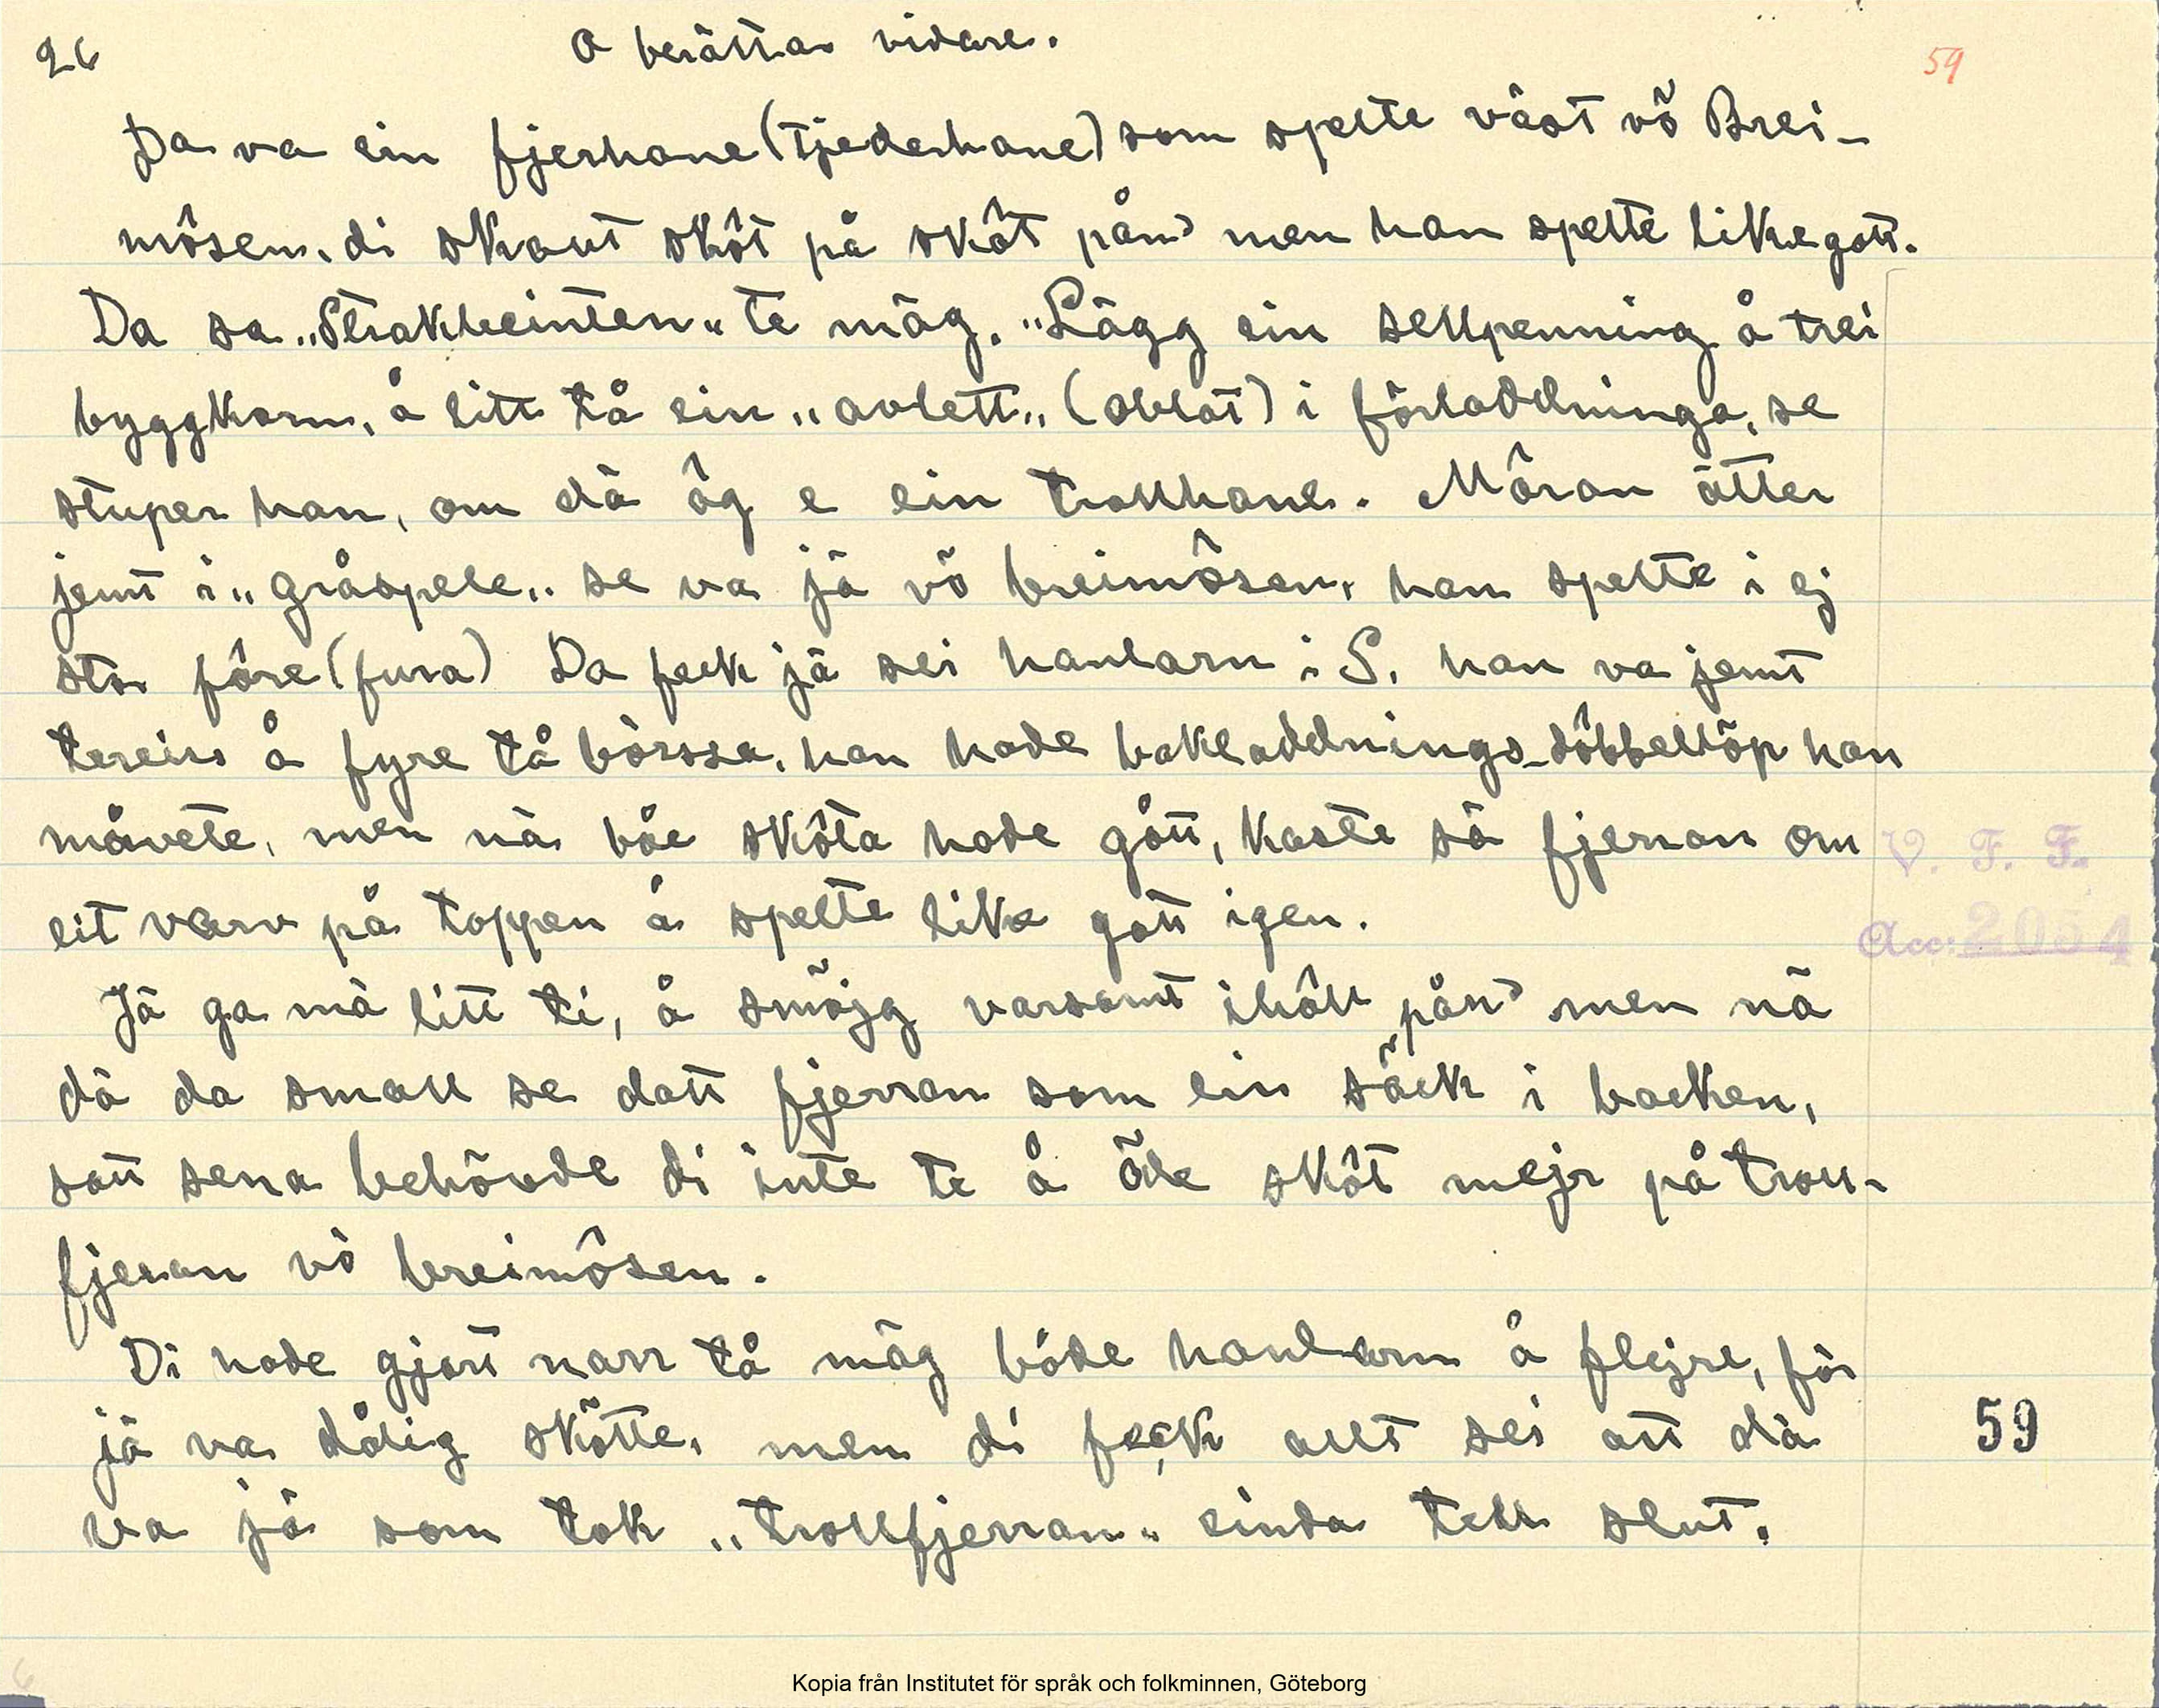 26 O berättar vidare. 59
Da va ein fjerhane (Tjederhane) som spelte väst vö Brei-
môsen, di skaut skôt på skôt pån' men han spelte likegott.
Da sa „Strakbeinten" te mäg. „Lägg ein sellpenning å trei
byggkorn, å litt tå ein „avlett" (oblat) i förladdninga, se
stuper han, om dä ôg e ein trollhane. Môran ätter
jemt i „gråspele" se va jä vö breimôsen, han spelte i ej
stor fôre (fura) Da feck jä sei hanlarn i S. han va jemt
tereirs å fyre tå börssa, han hade bakladdnings-dôbbellöp han
måvete, men nä båe skôta hade gått, kaste sä fjerran om
eit varv på toppen å spelte like gott igen.
Jä ga mä litt ti, å smöjg varsamt ihôll pån' men nä
dä da small se datt fjerran som ein säck i backen,
satt sena behövde di inte te å öde skôt mejr på troll-
fjeran vö breimôsen.
Di hade gjort narr tå mäg både hanlarn å flejre, för
jä va dålig skötte, men di feck allt sei att dä
va jä som tok „trollfjerran" einda tell slut.
V. F. F.
Acc: 2054
59
Kopia från Institutet för språk och folkminnen, Göteborg